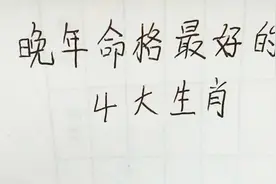 晚年命格最好的
4大生肖